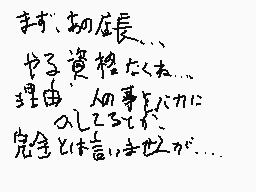 まず、あの店長...
やる資格なくね...
理由 人の事をバカに
してるとか、
完全とは言いませんが....